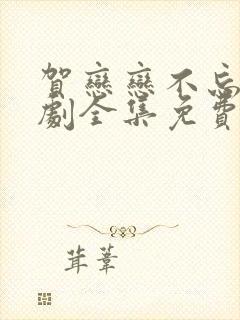 賀戀戀不忘
劇全集免費
茸葦